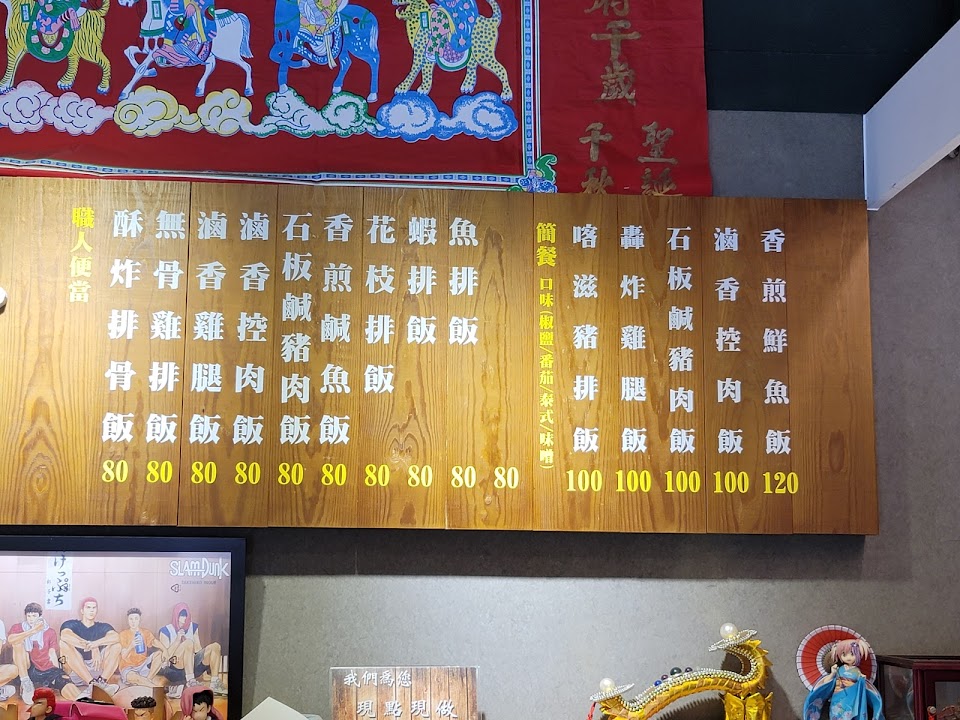 千歲
聖誕
千秋
職人便當
酥炸排骨飯 80
無骨雞排飯 80
滷香雞腿飯 80
滷香控肉飯 80
石板鹹豬肉飯 80
香煎鹹魚飯 80
花枝排飯 80
蝦排飯 80
魚排飯 80
80
簡餐 口味(椒鹽/番茄/泰式/味噌)
喀滋豬排飯 100
轟炸雞腿飯 100
石板鹹豬肉飯 100
滷香控肉飯 100
香煎鮮魚飯 120
けっぷち
SLAM DUNK
我們為您
現點現做